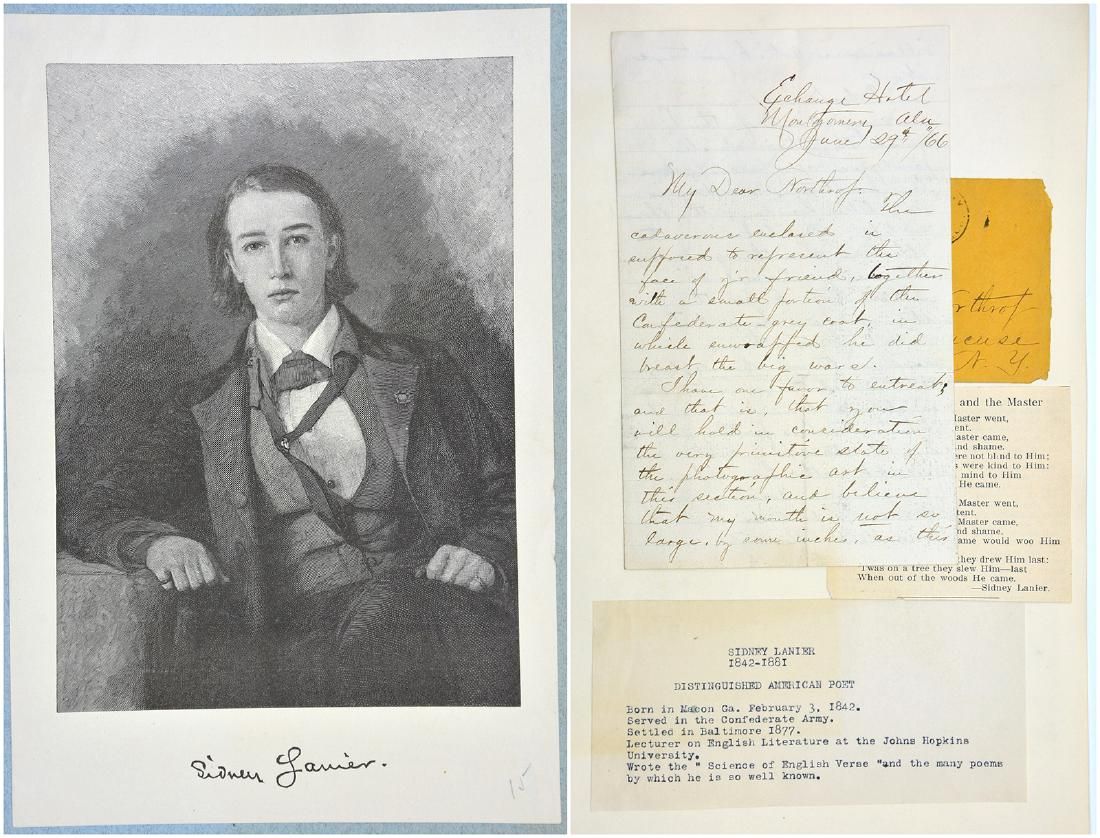 Sidney Lanier.
15
Exchange Hotel
Montgomery Ala
June 29th /66
My Dear Northrop.
The
cadaverous enclosed is
supposed to represent the
face of y'r friend, together
with a small portion of the
Confederate-grey coat, in
which enwrapped he did
breast the big wars.
I have one favor to entreat;
and that is, that you
will hold in consideration
the very primitive state of
the photographic art in
this section, and believe
that my mouth is not so
large, by some inches, as this
N. Y.
and the Master
Master went,
ent.
aster came,
nd shame.
ere not blind to Him;
s were kind to Him:
mind to Him
He came.
Master went,
tent.
Master came,
nd shame.
ame would woo Him
they drew Him last:
'Twas on a tree they slew Him—last
When out of the woods He came.
—Sidney Lanier.
SIDNEY LANIER
1842-1881
DISTINGUISHED AMERICAN POET
Born in Macon Ga. February 3, 1842.
Served in the Confederate Army.
Settled in Baltimore 1877.
Lecturer on English Literature at the Johns Hopkins
University.
Wrote the " Science of English Verse "and the many poems
by which he is so well known.